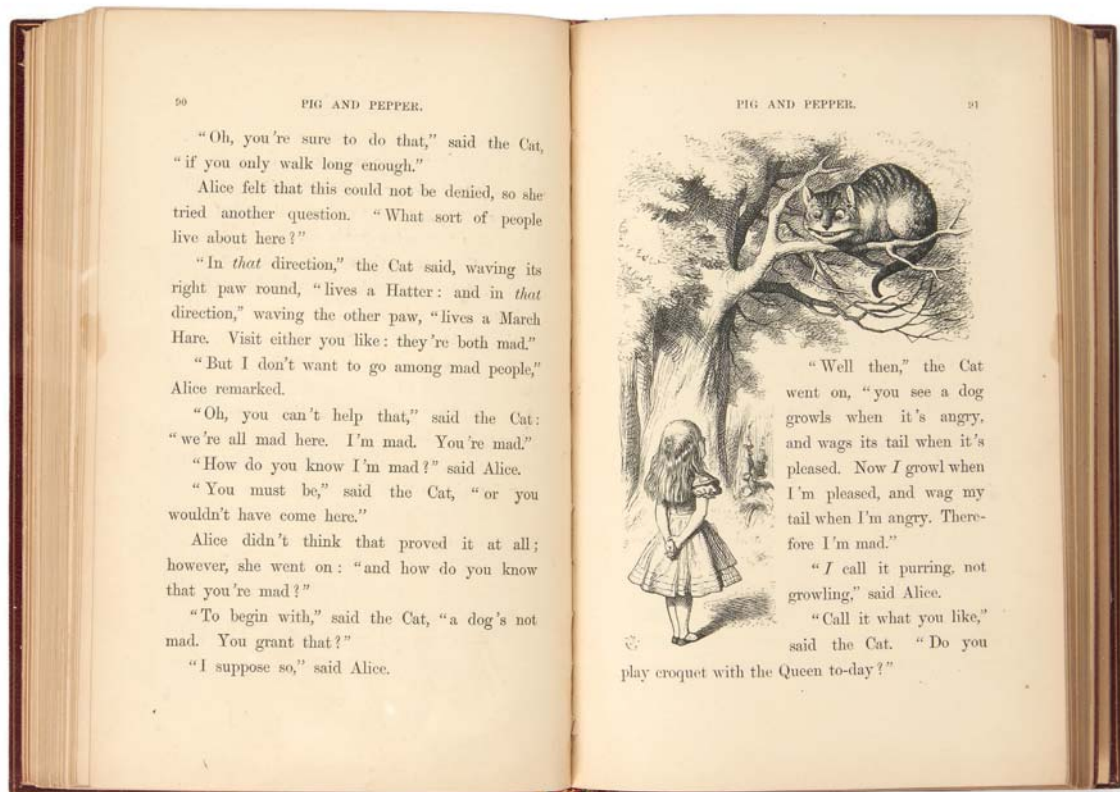 90 PIG AND PEPPER.
“Oh, you're sure to do that,” said the Cat,
“if you only walk long enough.”
Alice felt that this could not be denied, so she
tried another question. “What sort of people
live about here?”
“In that direction,” the Cat said, waving its
right paw round, “lives a Hatter: and in that
direction,” waving the other paw, “lives a March
Hare. Visit either you like: they're both mad.”
“But I don't want to go among mad people,”
Alice remarked.
“Oh, you can't help that,” said the Cat:
“we're all mad here. I'm mad. You're mad.”
“How do you know I'm mad?” said Alice.
“You must be,” said the Cat, “or you
wouldn't have come here.”
Alice didn't think that proved it at all;
however, she went on: “and how do you know
that you're mad?”
“To begin with,” said the Cat, “a dog's not
mad. You grant that?”
“I suppose so,” said Alice.
PIG AND PEPPER. 91
“Well then,” the Cat
went on, “you see a dog
growls when it's angry,
and wags its tail when it's
pleased. Now I growl when
I'm pleased, and wag my
tail when I'm angry. There-
fore I'm mad.”
“I call it purring, not
growling,” said Alice.
“Call it what you like,”
said the Cat. “Do you
play croquet with the Queen to-day?”